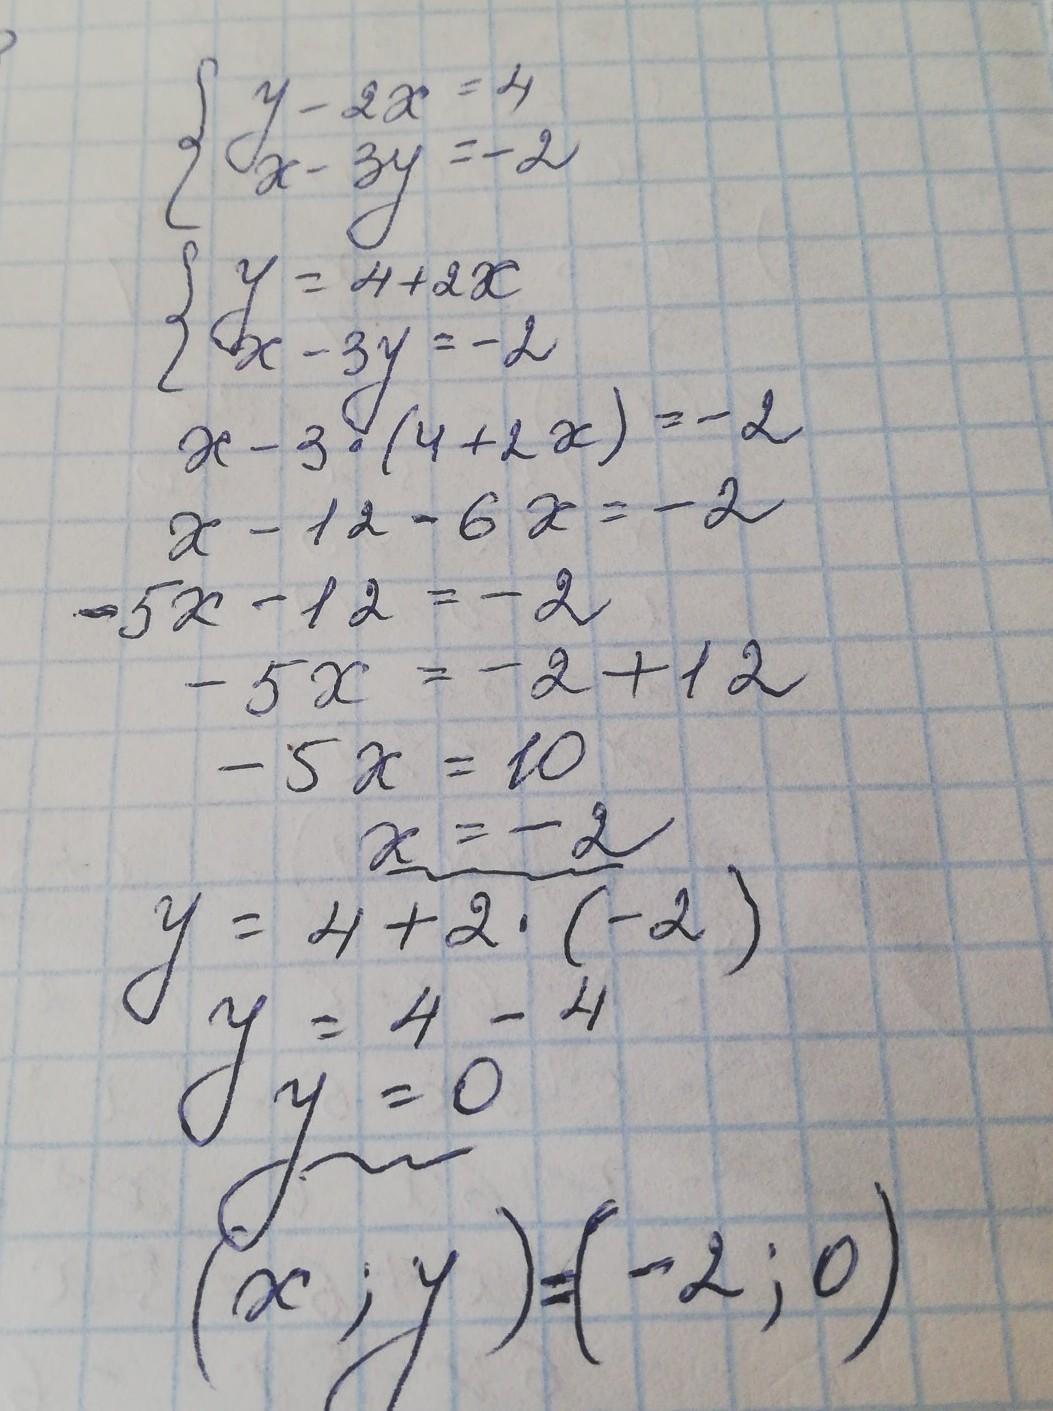 { y - 2x = 4
x - 3y = -2
{ y = 4+2x
x - 3y = -2
x - 3·(4+2x) = -2
x - 12 - 6x = -2
-5x - 12 = -2
-5x = -2+12
-5x = 10
x = -2
y = 4+2·(-2)
y = 4 - 4
y = 0
(x ; y) = (-2 ; 0)